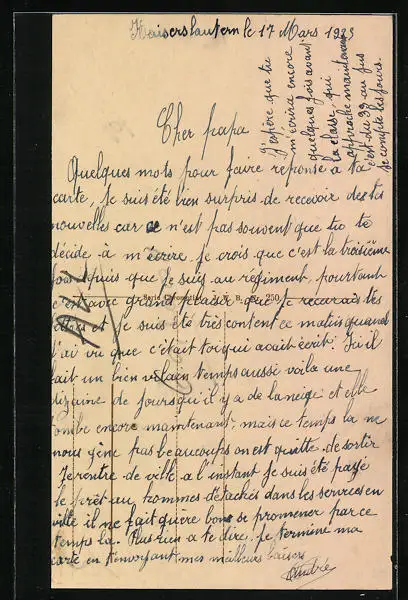 Kaiserslautern le 17 Mars 1923
Cher papa
Quelques mots pour faire reponse à ta
carte, Je suis été bien surpris de recevoir des tes
nouvelles car ce n'est pas souvent que tu te
décide à m'écrire, je crois que c'est la troisième
fois depuis que je suis au regiment, pourtant
c'est avec grand plaisir que je recevrais tes
lettres et je suis été très content ce matin quand
j'ai vu que c'était toi qui avait écrit. Ici il
fait un bien vilain temps aussi voila une
dizaine de jours qu'il y a de la neige et elle
tombe encore maintenant, mais ce temps la ne
nous gêne pas beaucoup on est quitte de sortir
Je rentre de ville a l'instant je suis été payé
le prêt au hommes détachés dans les services en
ville il ne fait guère bons se promener par ce
temps la. Plus rien a te dire. Je termine ma
carte en t'envoyant mes meilleurs baisers
André
J'espère que tu
m'écrira encore
quelques fois avant
la classe, qui
approche maintenant
c'est du 39 au jus
je compte les jours.
250